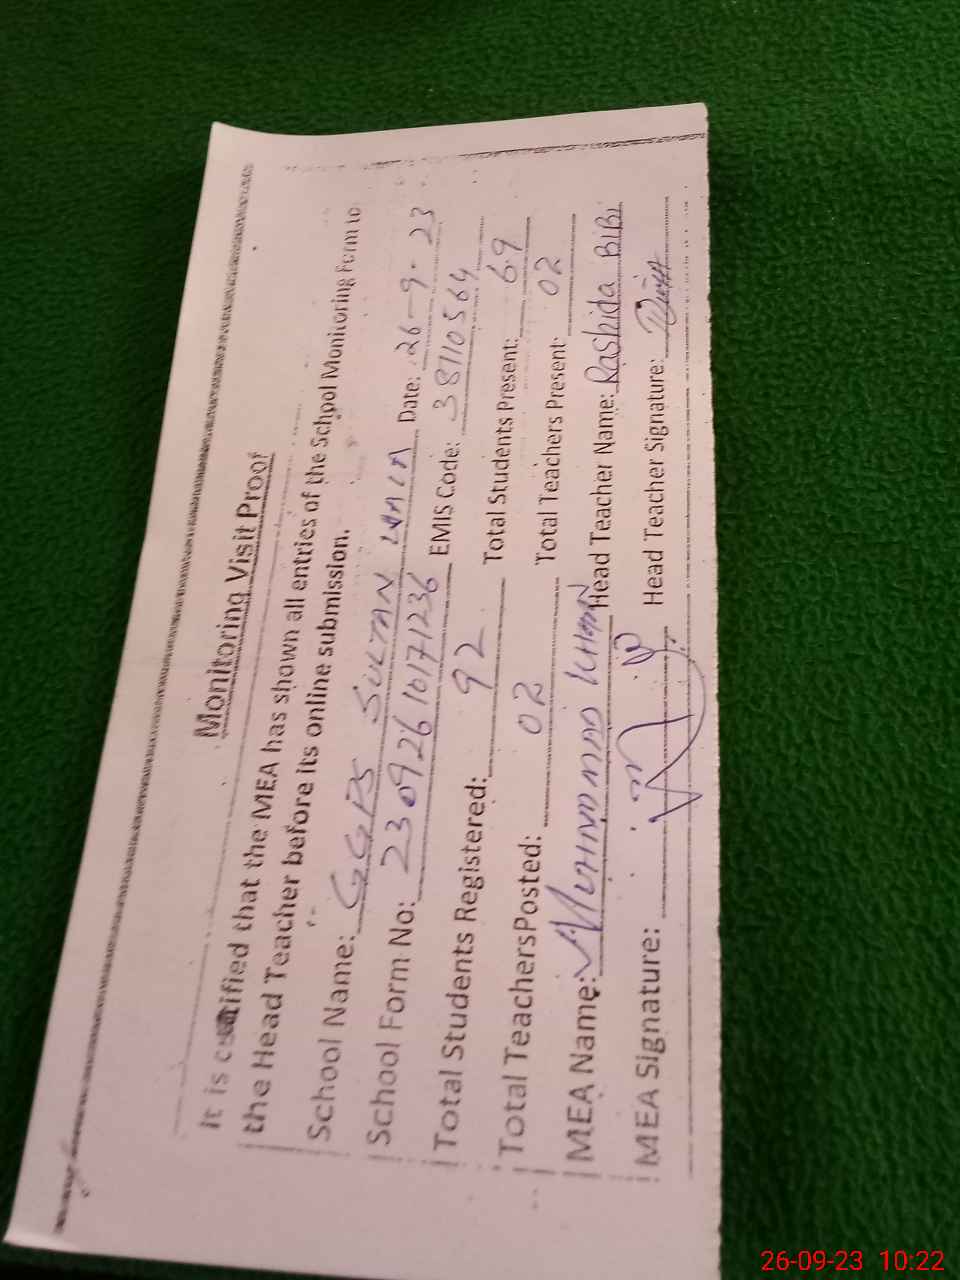 Monitoring Visit Proof
It is certified that the MEA has shown all entries of the School Monitoring Form to
the Head Teacher before its online submission.
School Name: GGPS SULTAN WALA Date: 26-9-23
School Form No: 23092610171236 EMIS Code: 38110564
Total Students Registered: 92 Total Students Present: 69
Total TeachersPosted: 02 Total Teachers Present: 02
MEA Name: MUHAMMAD KHAN Head Teacher Name: Rashida BIBI
MEA Signature: Head Teacher Signature:
26-09-23 10:22